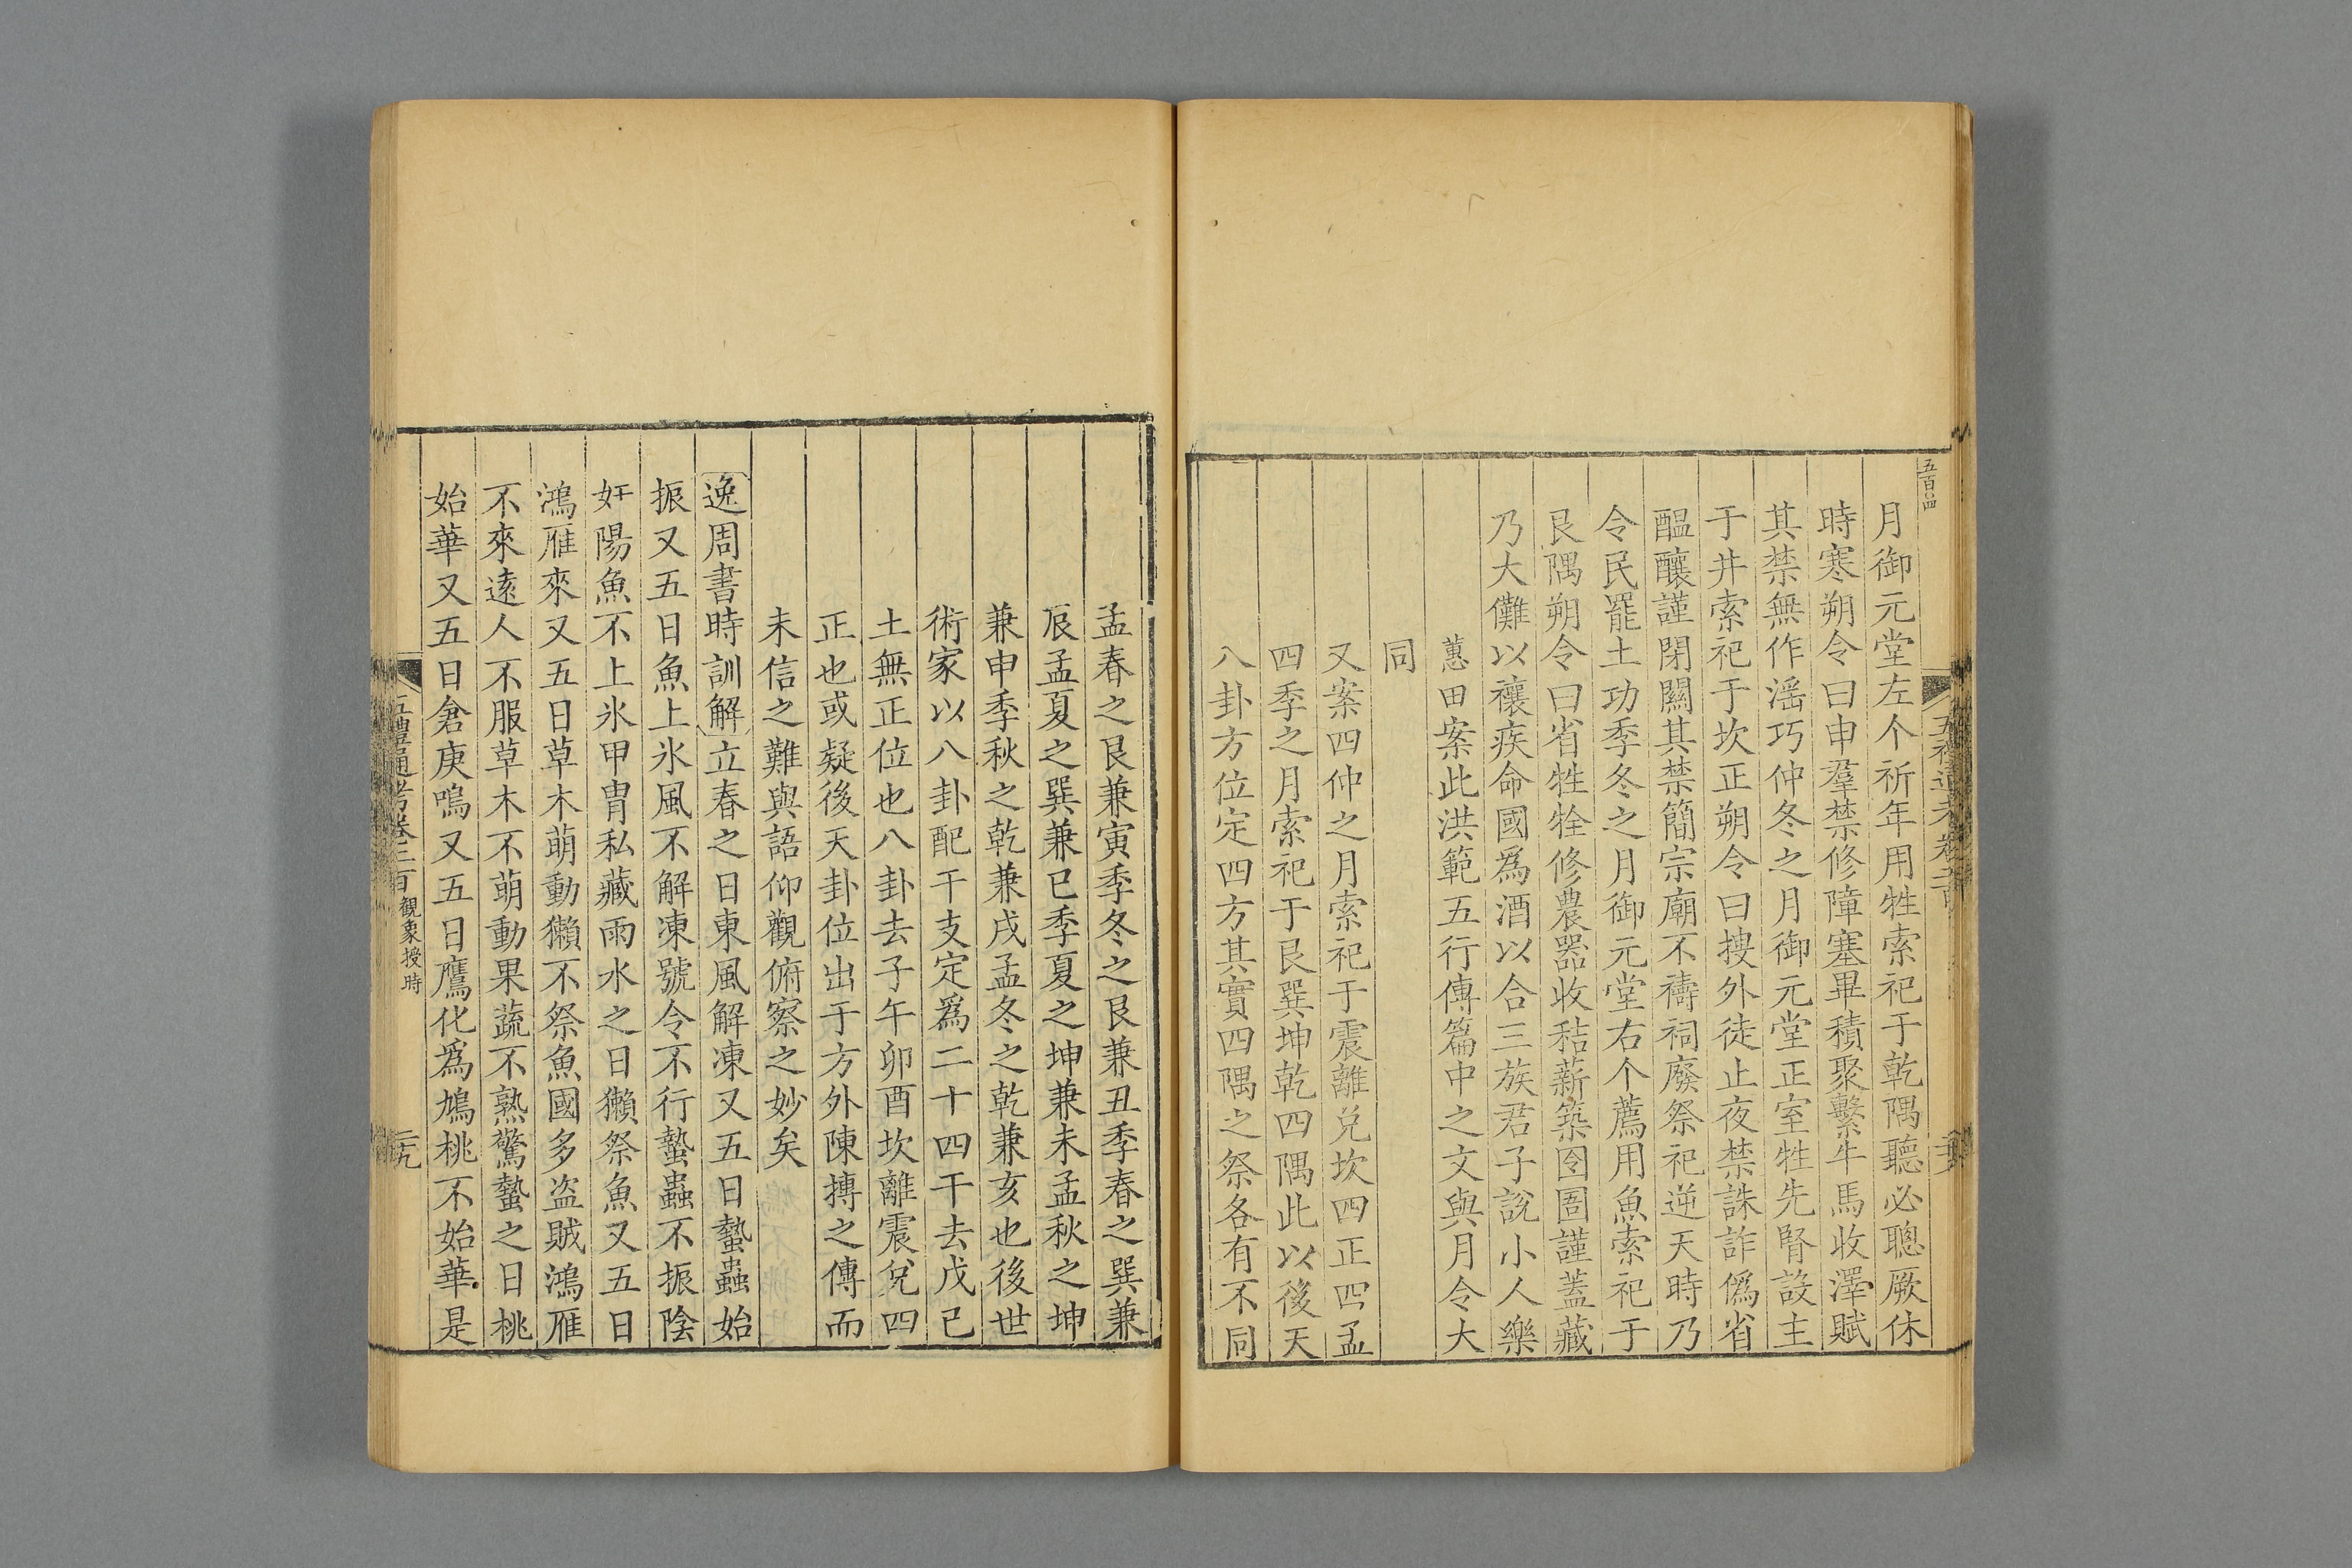 五百四
月御元堂左个祈年用牲索祀于乾隅聽必聰厥休
時寒朔令曰申羣禁修障塞畢積聚繫牛馬收澤賦
其禁無作滛巧仲冬之月御元堂正室牲先腎設主
于井索祀于坎正朔令曰搜外徒止夜禁誅詐僞省
醖釀謹閉關其禁簡宗廟不禱祠廢祭祀逆天時乃
令民罷土功季冬之月御元堂右个薦用魚索祀于
艮隅朔令曰省牲牷修農器收秸薪築囹圄謹蓋藏
乃大儺以禳疾命國爲酒以合三族君子說小人樂
蕙田案此洪範五行傳篇中之文與月令大
同
又案四仲之月索祀于震離兌坎四正四孟
四季之月索祀于艮巽坤乾四隅此以後天
八卦方位定四方其實四隅之祭各有不同
孟春之艮兼寅季冬之艮兼丑季春之巽兼
辰孟夏之巽兼巳季夏之坤兼未孟秋之坤
兼申季秋之乾兼戌孟冬之乾兼亥也後世
術家以八卦配干支定爲二十四干去戊己
土無正位也八卦去子午卯酉坎離震兌四
正也或疑後天卦位出于方外陳摶之傳而
未信之難與語仰觀俯察之妙矣
逸周書時訓解立春之日東風解凍又五日蟄蟲始
振又五日魚上氷風不解凍號令不行蟄蟲不振陰
奸陽魚不上氷甲胄私藏雨水之日獺祭魚又五日
鴻雁來又五日草木萌動獺不祭魚國多盗賊鴻雁
不來遠人不服草木不萌動果蔬不熟驚蟄之日桃
始華又五日倉庚鳴又五日鷹化爲鳩桃不始華是
五禮通考卷二百觀象授時
二九